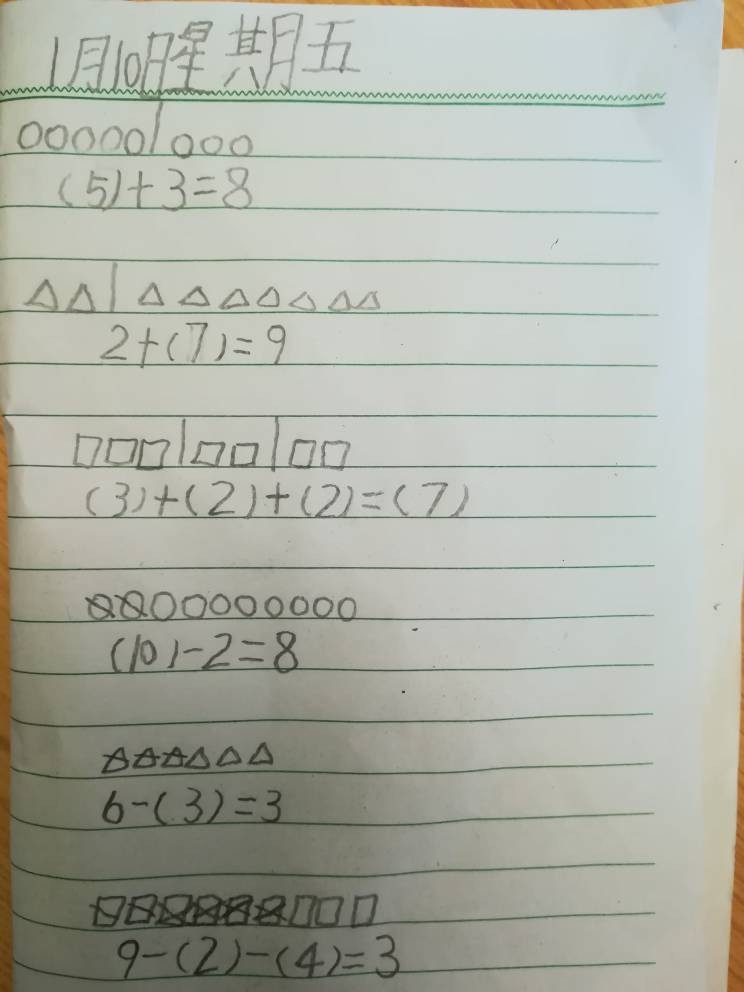 1月10日星期五
(5)+3=8
2+(7)=9
(3)+(2)+(2)=(7)
(10)-2=8
6-(3)=3
9-(2)-(4)=3